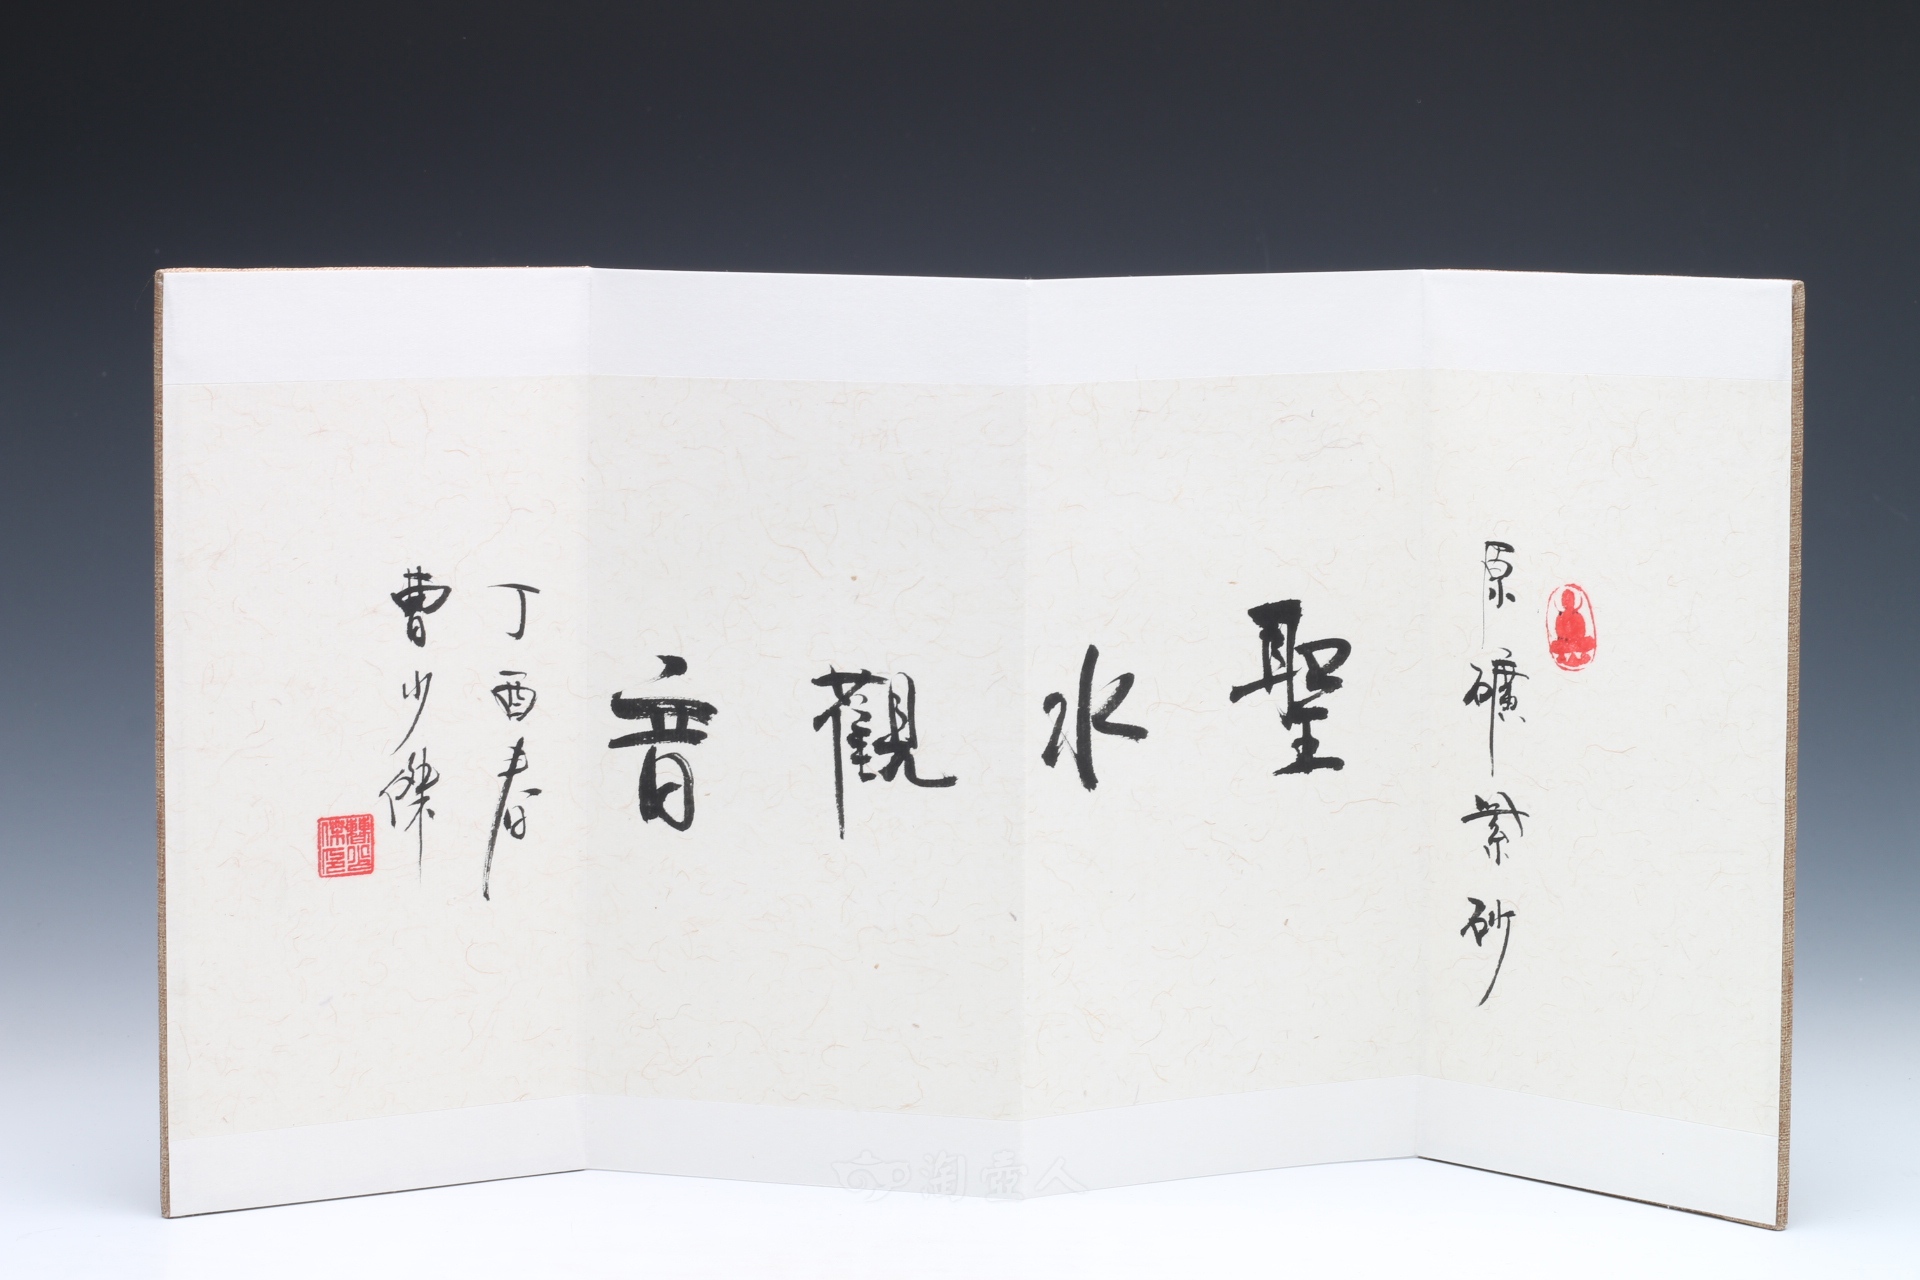 原礦紫砂
聖水觀音
丁酉春
曹少傑
淘壺人